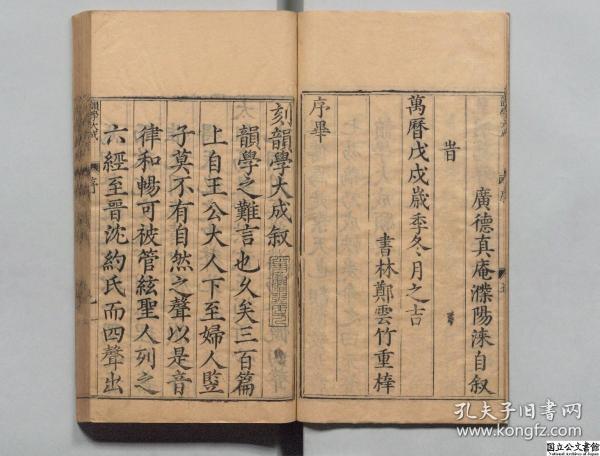 廣德真庵濮陽淶自叙
旹
萬曆戊戌歲季冬月之吉
書林鄭雲竹重梓
序畢
刻韻學大成叙
韻學之難言也久矣三百篇
上自王公大人下至婦人豎
子莫不有自然之聲以是音
律和暢可被管絃聖人列之
六經至晉沈約氏而四聲出
韻學大成
序
孔夫子旧書网
www.kongfz.com
国立公文書館
National Archives of Japan